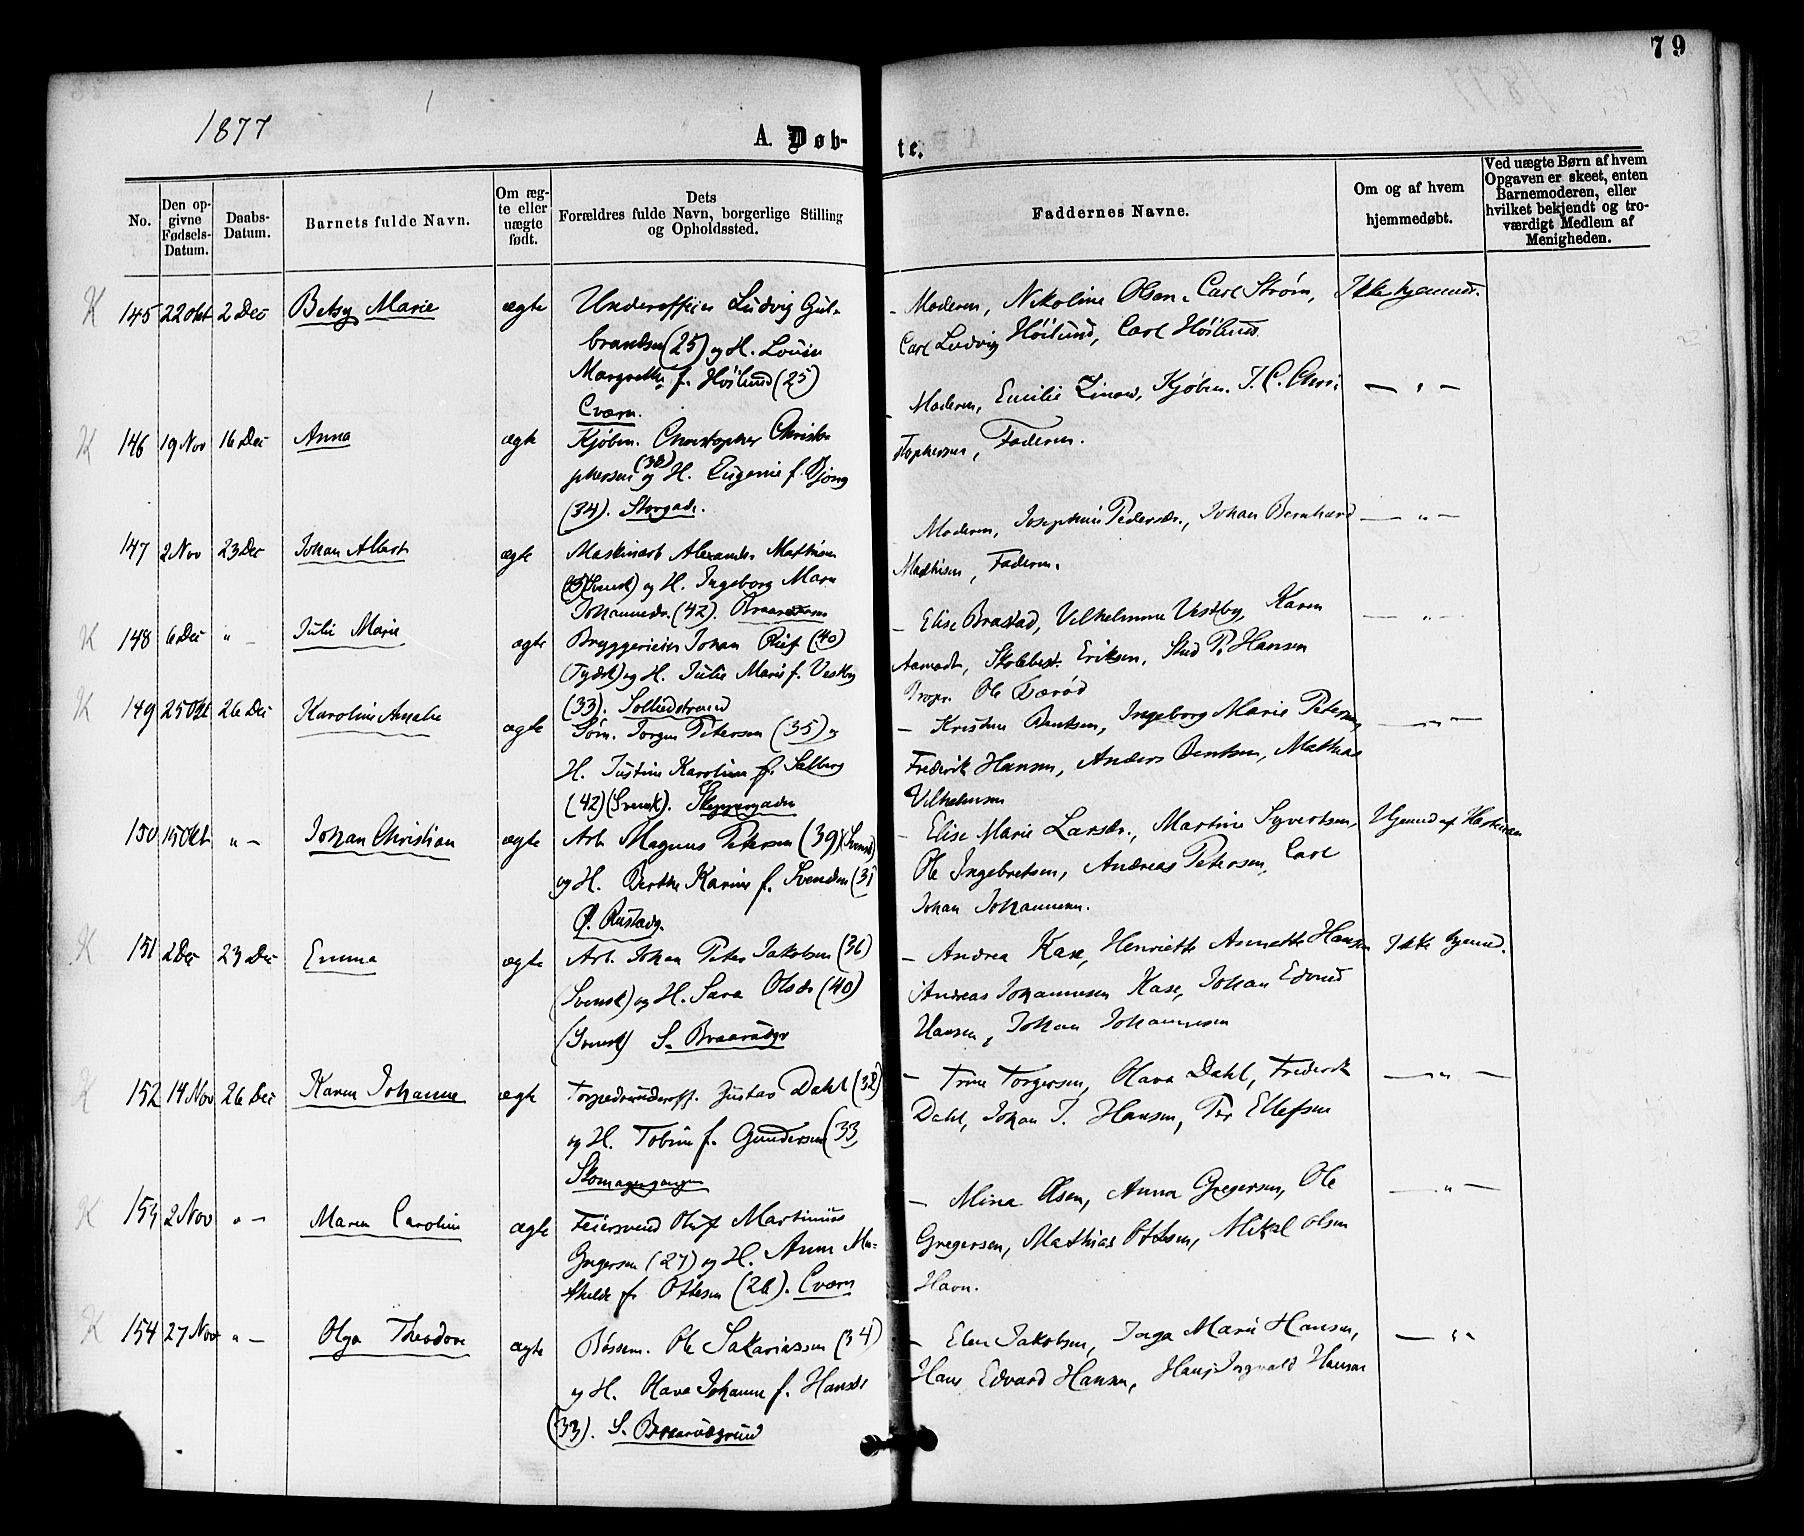 79
1877
A. Døbte.
No.
Den opgivne Fødsels-Datum.
Daabs-Datum.
Barnets fulde Navn.
Om ægte eller uægte født.
Dets Forældres fulde Navn, borgerlige Stilling og Opholdssted.
Faddernes Navne.
Om og af hvem hjemmedøbt.
Ved uægte Børn af hvem Opgaven er skeet, enten Barnemoderen, eller hvilket bekjendt og troværdigt Medlem af Menigheden.
K 145 22 Okt 2 Dec Betsy Marie ægte Underofficier Ludvig Gul- – Moderen, Nikoline Olsen, Carl Strøm, Ikke hjemmed.
brandsen (25) og H. Lovise Carl Ludvig Höilund, Carl Höilund
Margrethe f. Höilund (25)
Cværn.
K 146 19 Nov 16 Dec Anna ægte Kjøbm. Christopher Christo- – Moderen, Emilie Linow, Kjøbm. J. C. Chri- — " —
phersen (38) og H. Eugenie f. Bjong stophersen, Faderen.
(34). Storgade.
147 2 Nov 23 Dec Johan Albert ægte Maskinarb Alexander Mathisen Moderen, Josephine Pedersdr., Johan Bernhard — " —
(Svensk) og H. Ingeborg Marie Mathisen, Faderen.
Johannesdr. (42).
K 148 6 Dec " — Julie Marie ægte Bryggerieier Johan (40) – Elise Brastad, Vilhelmine Vestby, Karen — " —
(Tydsk) og H. Julie Marie f. Vestby Aamodt, Skolebest. Eriksen, Stud P. Hansen
(33). Propr. Ole
K 149 25 Okt 26 Dec Karoline Amalie ægte Søm. Jörgen Petersen (35) og – Kristine Berntsen, Ingeborg Marie Petersen, — " —
H. Justine Karoline f. Salberg Frederik Hansen, Anders Berntsen, Mathias
(42) (Svensk). Skippergaden Vilhelmsen
150 15 Okt " — Johan Christian ægte Arb. Magnus Petersen (39) (Svensk) – Elise Marie Larsdr., Martine Syvertsen, Hjemmed af
og H. Berthe Karine f. Svendsen (31 Ole Ingebretsen, Andreas Petersen, Carl
Ø. Rustadg. Johan Johannesen.
K 151 2 Dec 23 Dec Emma ægte Arb. Johan Peter Jakobsen (36) – Andrea Kase, Henriette Annette Hansen Ikke hjemmed.
(Svensk) og H. Sara Olsdr (40) Andreas Johannesen Kase, Johan Edvard
(Svensk) S. Hansen, Johan Johannesen
K 152 14 Nov 26 Dec Karen Johanne ægte Torpedounderoff. Gustav Dahl (32) – Trine Torgersen, Olava Dahl, Frederik — " —
og H. Tobine f. Gundersen (33, Dahl, Johan J. Hansen, Per Ellefsen
K 153 2 Nov " — Maren Caroline ægte Feiersvend Oluf Martinius – Mina Olsen, Anna Gregersen, Ole — " —
Gregersen (27) og H. Anne Ma- Gregersen, Mathias Ottesen, Mikal Olsen
thilde f. Ottesen (26). Cværn Havn.
K 154 27 Nov " — Olga Theodore ægte Bøssem. Ole Sakariassen (34) – Elen Jakobsen, Inga Marie Hansen, — " —
og H. Olava Johanne f. Hansdr Hans Edvard Hansen, Hans Ingvald Hansen
(33). S. Braarudgrund